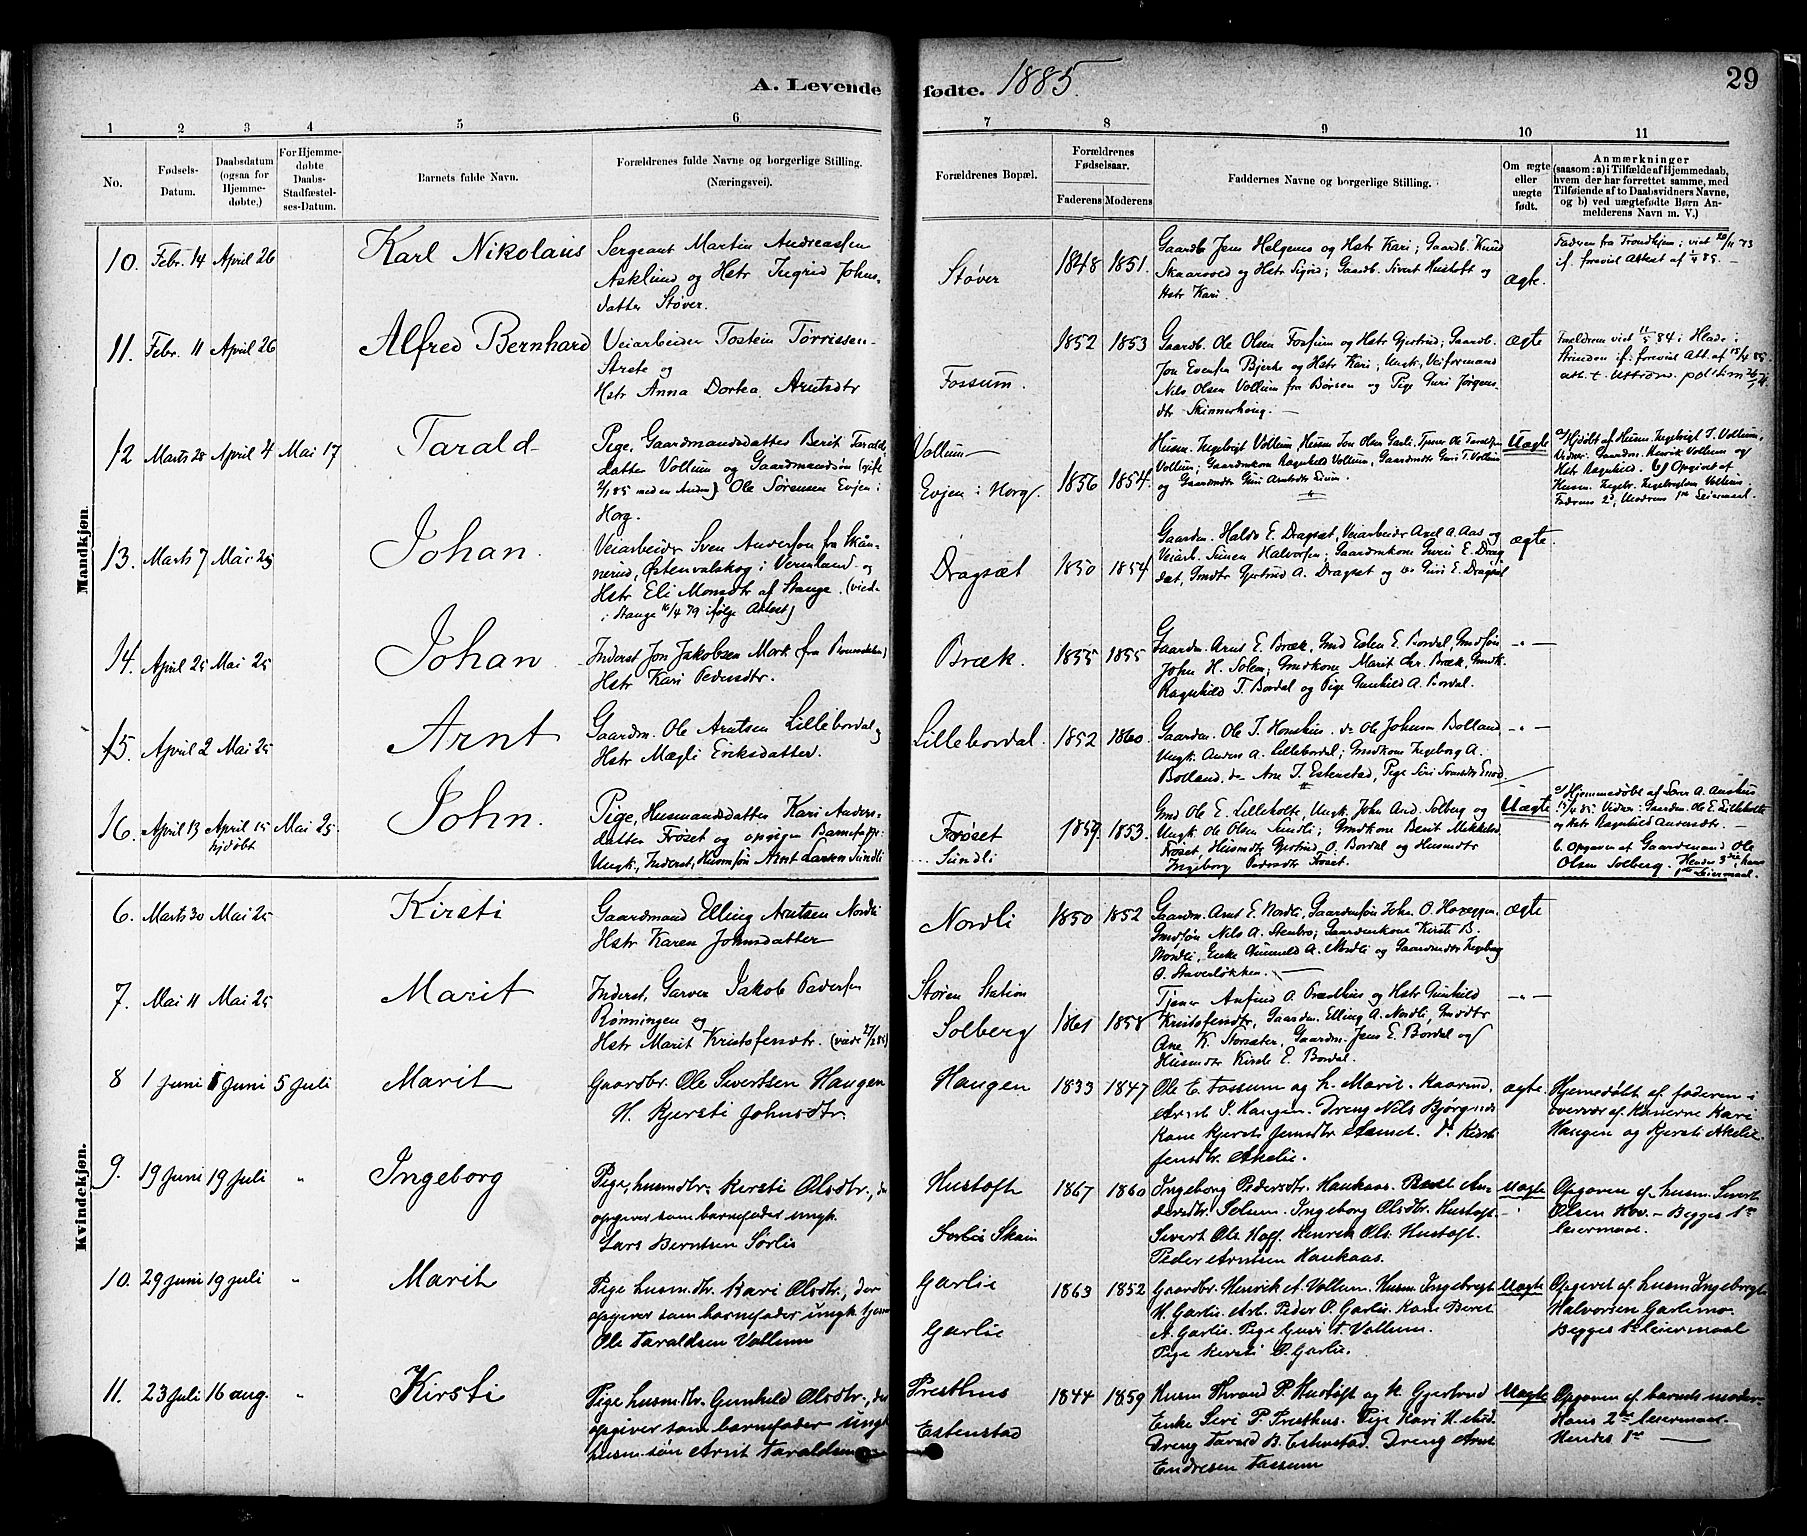 A. Levende
fødte. 1885.
29
1 2 3 4 5 6 7 8 9 10 11
No.
Fødsels-
Datum.
Daabsdatum
(ogsaa for
Hjemme-
døbte.)
For Hjemme-
døbte
Daabs-
Stadfæstel-
ses-Datum.
Barnets fulde Navn.
Forældrenes fulde Navne og borgerlige Stilling.
(Næringsvei).
Forældrenes Bopæl.
Forældrenes
Fødselsaar.
Faderens Moderens
Faddernes Navne og borgerlige Stilling.
Om ægte
eller
uægte
født.
Anmærkninger
(saasom: a) i Tilfælde af Hjemmedaab,
hvem der har forrettet samme, med
Tilføiende af to Daabsvidners Navne,
og b) ved uægtefødte Børn An-
melderens Navn m. V.)
Mandkjøn.
10. Febr. 14 April 26
Karl Nikolaus
Sergeant Martin Andreassen
Asklund og Hstr Ingrid Johns-
datter Støver.
Støver
1848 1851.
Gaardb Jens Helgenes og Hstr Kari; Gaardb. Knud
Skaarvold og Hstr Sigrid; Gaardb. Sivert Hustoft og
Hstr Kari.
ægte.
Faderen fra Trondhjem; viet 20/11 73
if. forevist Attest af 1/4 85. —
11. Febr. 11 April 26
Alfred Bernhard
Veiarbeider Tostein Tørrissen
Strete og
Hstr Anna Dortea Arntsdtr
Fossum.
1852 1853
Gaardb. Ole Olsen Fossum og Hstr Gjertrud; Gaardb.
Jon Evensen Bjerke og Hstr Kari; Ungk; Veiformand
Nils Olsen Vollum fra Børsen og Pige Guri Jørgens
dtr Skinnerhaug. —
ægte
Forældrene viet 11/5 84 i Hlade
Strinden if. forevist Att. af 15/4 85
12 Marts 28 April 4 Mai 17
Tarald
Pige, Gaardmandsdatter Berit Taralds
datter Vollum og Gaardmandsøn (gift
2/1 85 med en Anden) Ole Sørensen Evjen i
Horg.
Vollum
Evjen i Horg
1856 1854.
Husm. Ingebrigt Vollum, Husm Jon Olsen Garli, Tjener Ole Taraldsen
Vollum; Gaardmkone Ragnhild Vollum, Gaardmdtr Guri T. Vollum
og Gaardmdtr Guri Arntsdtr
Uægte
a/ Hjdøbt af Husm. Ingebrigt T. Vollum,
Vidner: Gaardm. Henrik Vollum og
Hstr Ragnhild. b/ Opgivet af
Husm. Ingebr. Ingebrigtsen Vollum;
Faderens 2d, Moderens 1ste Leiermaal.
13. Marts 7 Mai 25
Johan.
Veiarbeider Sven Andersson fra Skån-
nerud, Østenvalskog i Vermland og
Hstr Eli Monsdtr af Stange. (viede
i Stange 16/4 79 ifølge Attest)
Dragsæt
1850 1854
Gaardm. Haldo E. Dragsæt, Veiarbeider Axel A. Aas og
Veiarb. Simen Halvorsen; Gaardmkone Guri E. Drag
sæt, Gmdtr Gjertrud A. Dragsæt og do Guri E. Dragsæt
ægte.
14. April 25 Mai 25
Johan.
Inderst Jon Jakobsen Mork (fra Romsdalen)
Hstr Kari Pedersdtr.
Bræk.
1855 1855
Gaardm. Arnt E. Bræk, Gmd Esten E. Bordal, Gmdsøn
John H. Solem; Gmdkone Marit Chr. Bræk, Gmdk.
Ragnhild T. Bordal og Pige Gunhild A. Bordal.
-"-
15. April 2 Mai 25
Arnt
Gaardm. Ole Arntsen Lillebordal og
Hstr Magli Eriksdatter.
Lillebordal.
1852 1860.
Gaardm. Ole T. Honshus. do Ole Johnsen Bolland
Ungk. Anders A. Lillebordal; Gmdkone Ingeborg A.
Bolland, do Ane I. Estenstad, Pige Siri
-"-
16. April 13 April 15 Mai 25.
hjdøbt
John.
Pige, Husmandsdatter Kari Anders-
datter Frøset og opgiven Barnefader:
Ungk., Inderst, Husmsøn Arnt Larsen Sundli
Frøset
Sundli
1859. 1853.
Gmd Ole E. Lilleholte, Ungk. John And. Solberg og
Ungk. Ole Olsen Sundli; Gmdkone Berit Mikkelsd.
Frøset, Husmdtr Gjertrud O. Bordal og Husmdtr
Ingeborg Pedersdtr Frøset.
Uægte
a/ Hjemmedøbt af Lærer A. Aunhus
15/4 85. Vidner: Gaardm. Ole E. Lilleholte
og Hstr Ragnhild Andersdtr. —
b. Opgaven af Gaardmand Ole
Olsen Solberg. Hendes 3die hans
1ste Leiermaal.
Kvindekjøn.
6. Marts 30 Mai 25
Kirsti
Gaardmand Elling Arntsen Nordli
Hstr Karen Johnsdatter
Nordli
1850 1852
Gaardm. Arnt E. Nordli, Gaardmsøn John O. Hoveggen,
Gmdsøn Nils A. Stenbro; Gaardmkone Kirsti B.
Nordli, Enke Gunnild A. Nordli og Gaardmdtr Ingeborg
O. Staverløkken. —
ægte
7. Mai 11 Mai 25
Marit
Inderst, Garver Jakob Pedersen
Rønningen og
Hstr Marit Kristofersdtr. (viede 27/2 85)
Støren Station
Solberg
1861 1858
Tjener Anfind O. Præsthus og Hstr Gunhild
Kristofersdtr, Gaardm. Elling A. Nordli, Gmdtr
Ane K. Storsæter, Gaardm. Jens E. Bordal og
Husmdtr Kirsti E. Bordal.
-"-
8 1 Juni 5 Juni 5 Juli
Marit
Gaardbr. Ole Sivertsen Haugen
H. Kjersti Johnsdtr.
Haugen
1833 1847
Ole E. Fossum og h. Marit. Kaarmd.
Arnt S. Haugen. Dreng Nils Bjørgnæs
Kone Kjersti Jensdtr Aamot. d. Kirsti
Jensdtr. Akelie.
ægte.
Hjemmedøbt af faderen i
overvær af Konerne Kari
Haugen og Kjersti Akelie.
9. 19 Juni 19 Juli "
Ingeborg
Pige, husmdtr. Kersti Olsdtr., der
opgiver som barnefader ungk.
Lars Berntsen Sørlie
Hustoft
Sørlie Skain
1867 1860
Ingeborg Pedersdtr. Haukaas. Beret An-
dersdtr Solum. Ingeborg Olsdtr. Hustoft.
Sivert Ols. Hoff. Henrik Ols. Hustoft.
Peder Arntsen Haukaas.
Uægte
Opgaven af husm. Sivert
Olsen Hov. — Begges 1ste
leiermaal.
10. 29 Juni 19 Juli "
Marit
Pige husmdtr. Kari Olsdtr., der
opgiver som barnefader ungk tjener
Ole Taraldsen Vollum
Garlie
Garlie
1863 1852
Gaardbr. Henrik A. Vollum. Husm. Ingebrigt
H. Garlie. Arb. Peder O. Garlie. Kone Beret
A. Garlie. Pige Guri T. Vollum.
Pige Kersti O. Garlie.
Uægte
Opgivet af husm Ingebrigt
Halvorsen Garlimo.
Begges 1ste leiermaal
11. 23 Juli 16 aug. "
Kirsti
Pige husmdtr. Gunhild Olsdtr., der
opgiver som barnefader ungk
husm. søn Arnt Taraldsen
Presthus
Estenstad
1844 1859
Husm Thrond P. Hustoft og k. Gjertrud
Enke Siri P. Presthus. Pige Kari H.
Dreng Tarald B. Estenstad. Dreng Arnt
Endresen Fossum
Uægte
Opgaven af barnets moder.
Hans 2det leiermaal.
Hendes 1ste —